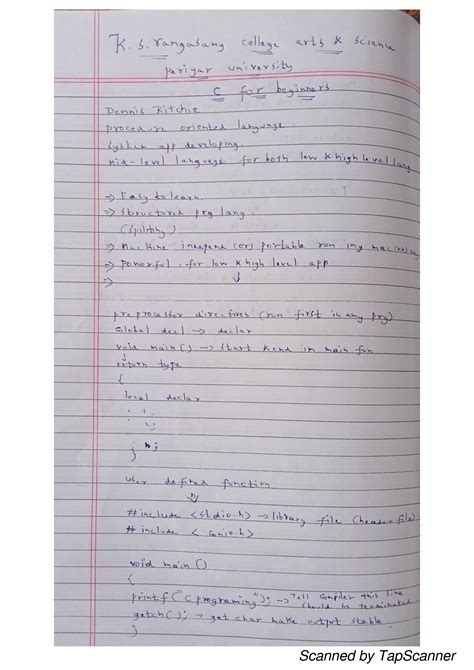 K. S. rangasamy college arts & science
periyar university
C for beginners
Dennis Ritchie
procedure oriented language.
System app developing.
mid-level language for both low & high level lang
=> Easy to learn.
=> Structured prg lang.
=> Machine independ (or) portable run in
=> Powerful. for low & high level app
=>
preprocessor directives (run first in any prg)
Global decl -> declar
void main() -> Start & end in main fun
return type
{
local declar
1;
2;
}
User defined function
#include <stdio.h> -> library file (header file)
# include < conio.h>
void main ()
{
printf("C programing"); -> Tell Compiler this line
should be terminated
getch(); -> get char make output stable.
}
Scanned by TapScanner